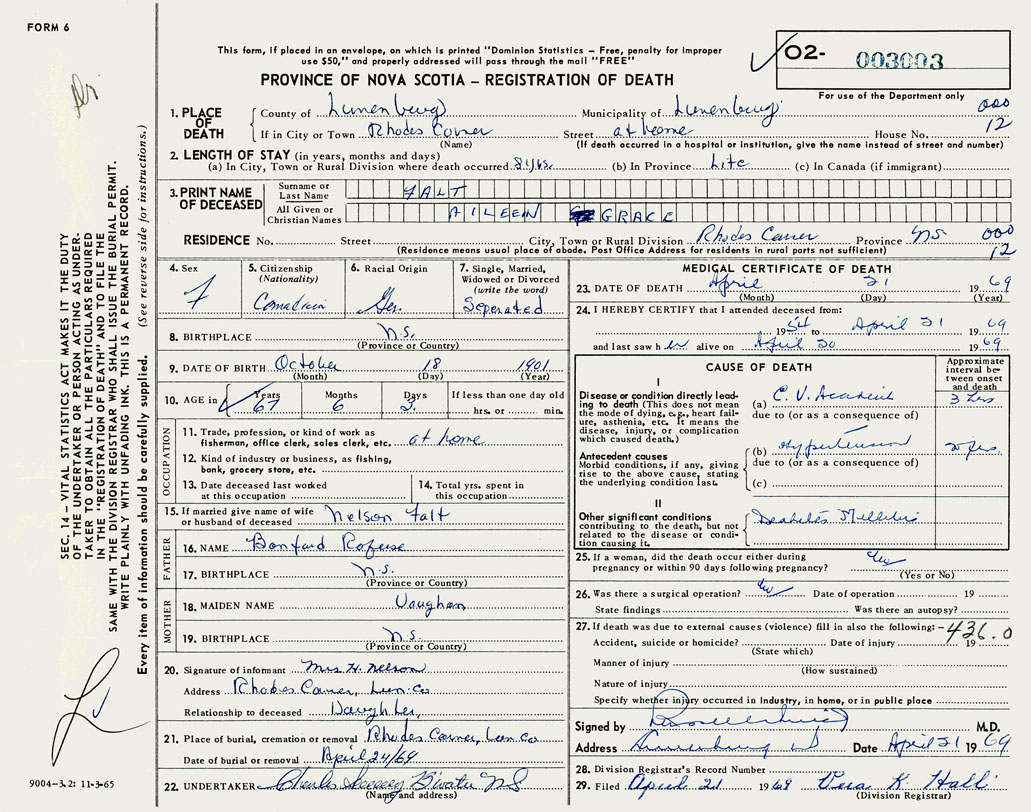 FORM 6
This form, if placed in an envelope, on which is printed "Dominion Statistics – Free, penalty for improper
use $50," and properly addressed will pass through the mail "FREE"
PROVINCE OF NOVA SCOTIA – REGISTRATION OF DEATH
O2- 003003
For use of the Department only
1. PLACE OF DEATH
County of Lunenburg Municipality of Lunenburg 000
If in City or Town Rhodes Corner Street at home House No. 12
(Name) (If death occurred in a hospital or institution, give the name instead of street and number)
2. LENGTH OF STAY (in years, months and days)
(a) In City, Town or Rural Division where death occurred 8 yrs. (b) In Province Life (c) In Canada (if immigrant)
3. PRINT NAME OF DECEASED
Surname or Last Name FALT
All Given or Christian Names AILEEN GRACE
RESIDENCE No. Street City, Town or Rural Division Rhodes Corner Province NS 000
(Residence means usual place of abode. Post Office Address for residents in rural parts not sufficient) 12
4. Sex F
5. Citizenship (Nationality) Canadian
6. Racial Origin Ger.
7. Single, Married, Widowed or Divorced (write the word) Seperated
8. BIRTHPLACE N.S.
(Province or Country)
9. DATE OF BIRTH October 18 1901
(Month) (Day) (Year)
10. AGE in Years 67 Months 6 Days 3. If less than one day old hrs. or min.
OCCUPATION
11. Trade, profession, or kind of work as fisherman, office clerk, sales clerk, etc. at home
12. Kind of industry or business, as fishing, bank, grocery store, etc.
13. Date deceased last worked at this occupation
14. Total yrs. spent in this occupation
15. If married give name of wife or husband of deceased Nelson Falt
FATHER
16. NAME
17. BIRTHPLACE N.S.
(Province or Country)
MOTHER
18. MAIDEN NAME Vaughan
19. BIRTHPLACE N.S.
(Province or Country)
20. Signature of informant Mrs H. Nelson
Address Rhodes Corner, Lun Co
Relationship to deceased Daughter,
21. Place of burial, cremation or removal Rhodes Corner, Lun Co
Date of burial or removal April 24/69
22. UNDERTAKER Charles NS
(Name and address)
MEDICAL CERTIFICATE OF DEATH
23. DATE OF DEATH April 21 1969
(Month) (Day) (Year)
24. I HEREBY CERTIFY that I attended deceased from:
1954 to April 21 1969
and last saw her alive on April 20 1969
CAUSE OF DEATH
Approximate interval between onset and death
I
Disease or condition directly leading to death (This does not mean the mode of dying, e.g., heart failure, asthenia, etc. It means the disease, injury, or complication which caused death.)
(a) C. V. Accident 3 hrs
due to (or as a consequence of)
Antecedent causes
Morbid conditions, if any, giving rise to the above cause, stating the underlying condition last.
(b) Hypertension yrs.
due to (or as a consequence of)
(c)
II
Other significant conditions contributing to the death, but not related to the disease or condition causing it.
Diabetes Mellitus
25. If a woman, did the death occur either during pregnancy or within 90 days following pregnancy?
(Yes or No)
26. Was there a surgical operation? Date of operation 19
State findings Was there an autopsy?
27. If death was due to external causes (violence) fill in also the following: – 436.0
Accident, suicide or homicide? Date of injury 19
(State which)
Manner of injury
(How sustained)
Nature of injury
Specify whether injury occurred in Industry, in home, or in public place
Signed by M.D.
Address Date April 21 1969
28. Division Registrar's Record Number
29. Filed April 21 1969 K. Hall
(Division Registrar)
SEC. 14 – VITAL STATISTICS ACT MAKES IT THE DUTY
OF THE UNDERTAKER OR PERSON ACTING AS UNDER-
TAKER TO OBTAIN ALL THE PARTICULARS REQUIRED
IN THE "REGISTRATION OF DEATH" AND TO FILE THE
SAME WITH THE DIVISION REGISTRAR WHO SHALL ISSUE THE BURIAL PERMIT.
WRITE PLAINLY WITH UNFADING INK. THIS IS A PERMANENT RECORD.
Every item of information should be carefully supplied. (See reverse side for instructions.)
9004-3.2: 11-3-65